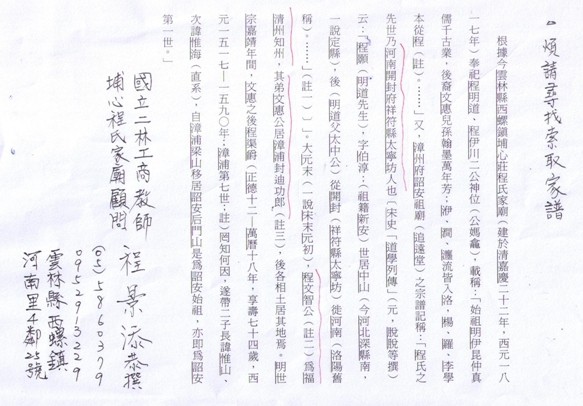 煩請尋找索取家譜
根據今雲林縣西螺鎮埔心莊程氏家廟（建於清嘉慶二十二年，西元一八
一七年）奉祀程明道、程伊川二公神位（公媽龕），載稱：「始祖明伊昆仲真
儒千古業，後裔文惠兒孫翰墨萬年芳；伊、澗、瀍流皆入洛　楊、羅、李學
本從程（註）。……」又，漳州府詔安祖廟（追遠堂）之宗譜記稱：「程氏之
先世乃河南開封府祥符縣太寧坊人也（宋史「道學列傳」（元，脫脫等撰）
云：「程顥（明道先生），字伯淳：（祖籍新安）世居中山（今河北深縣南，
一說定縣）後（明道父太中公）從開封（祥符縣太寧坊）徙河南（洛陽舊
稱）。……」（註一）」。大元末（一說宋末元初），程文智公（註二）爲福
清州知州，其弟文惠公居漳浦封迪功郎（註三），後各相土居其地焉。明世
宗嘉靖年間，文惠之後程渠爵（正德十二—萬曆十八年，享壽七十四歲，西
元一五一七—一五九〇年，漳浦第七世：註）罔知何因，遂帶二子長諱惟山、
次諱惟海（直系），自漳浦梁山移居詔安后門山是爲詔安始祖，亦即爲詔安
第一世。」
國立二林工商教師
埔心程氏家廟顧問
程景添恭撰
(05)5860379
0952913229
雲林縣西螺鎮
河南里4鄰25號